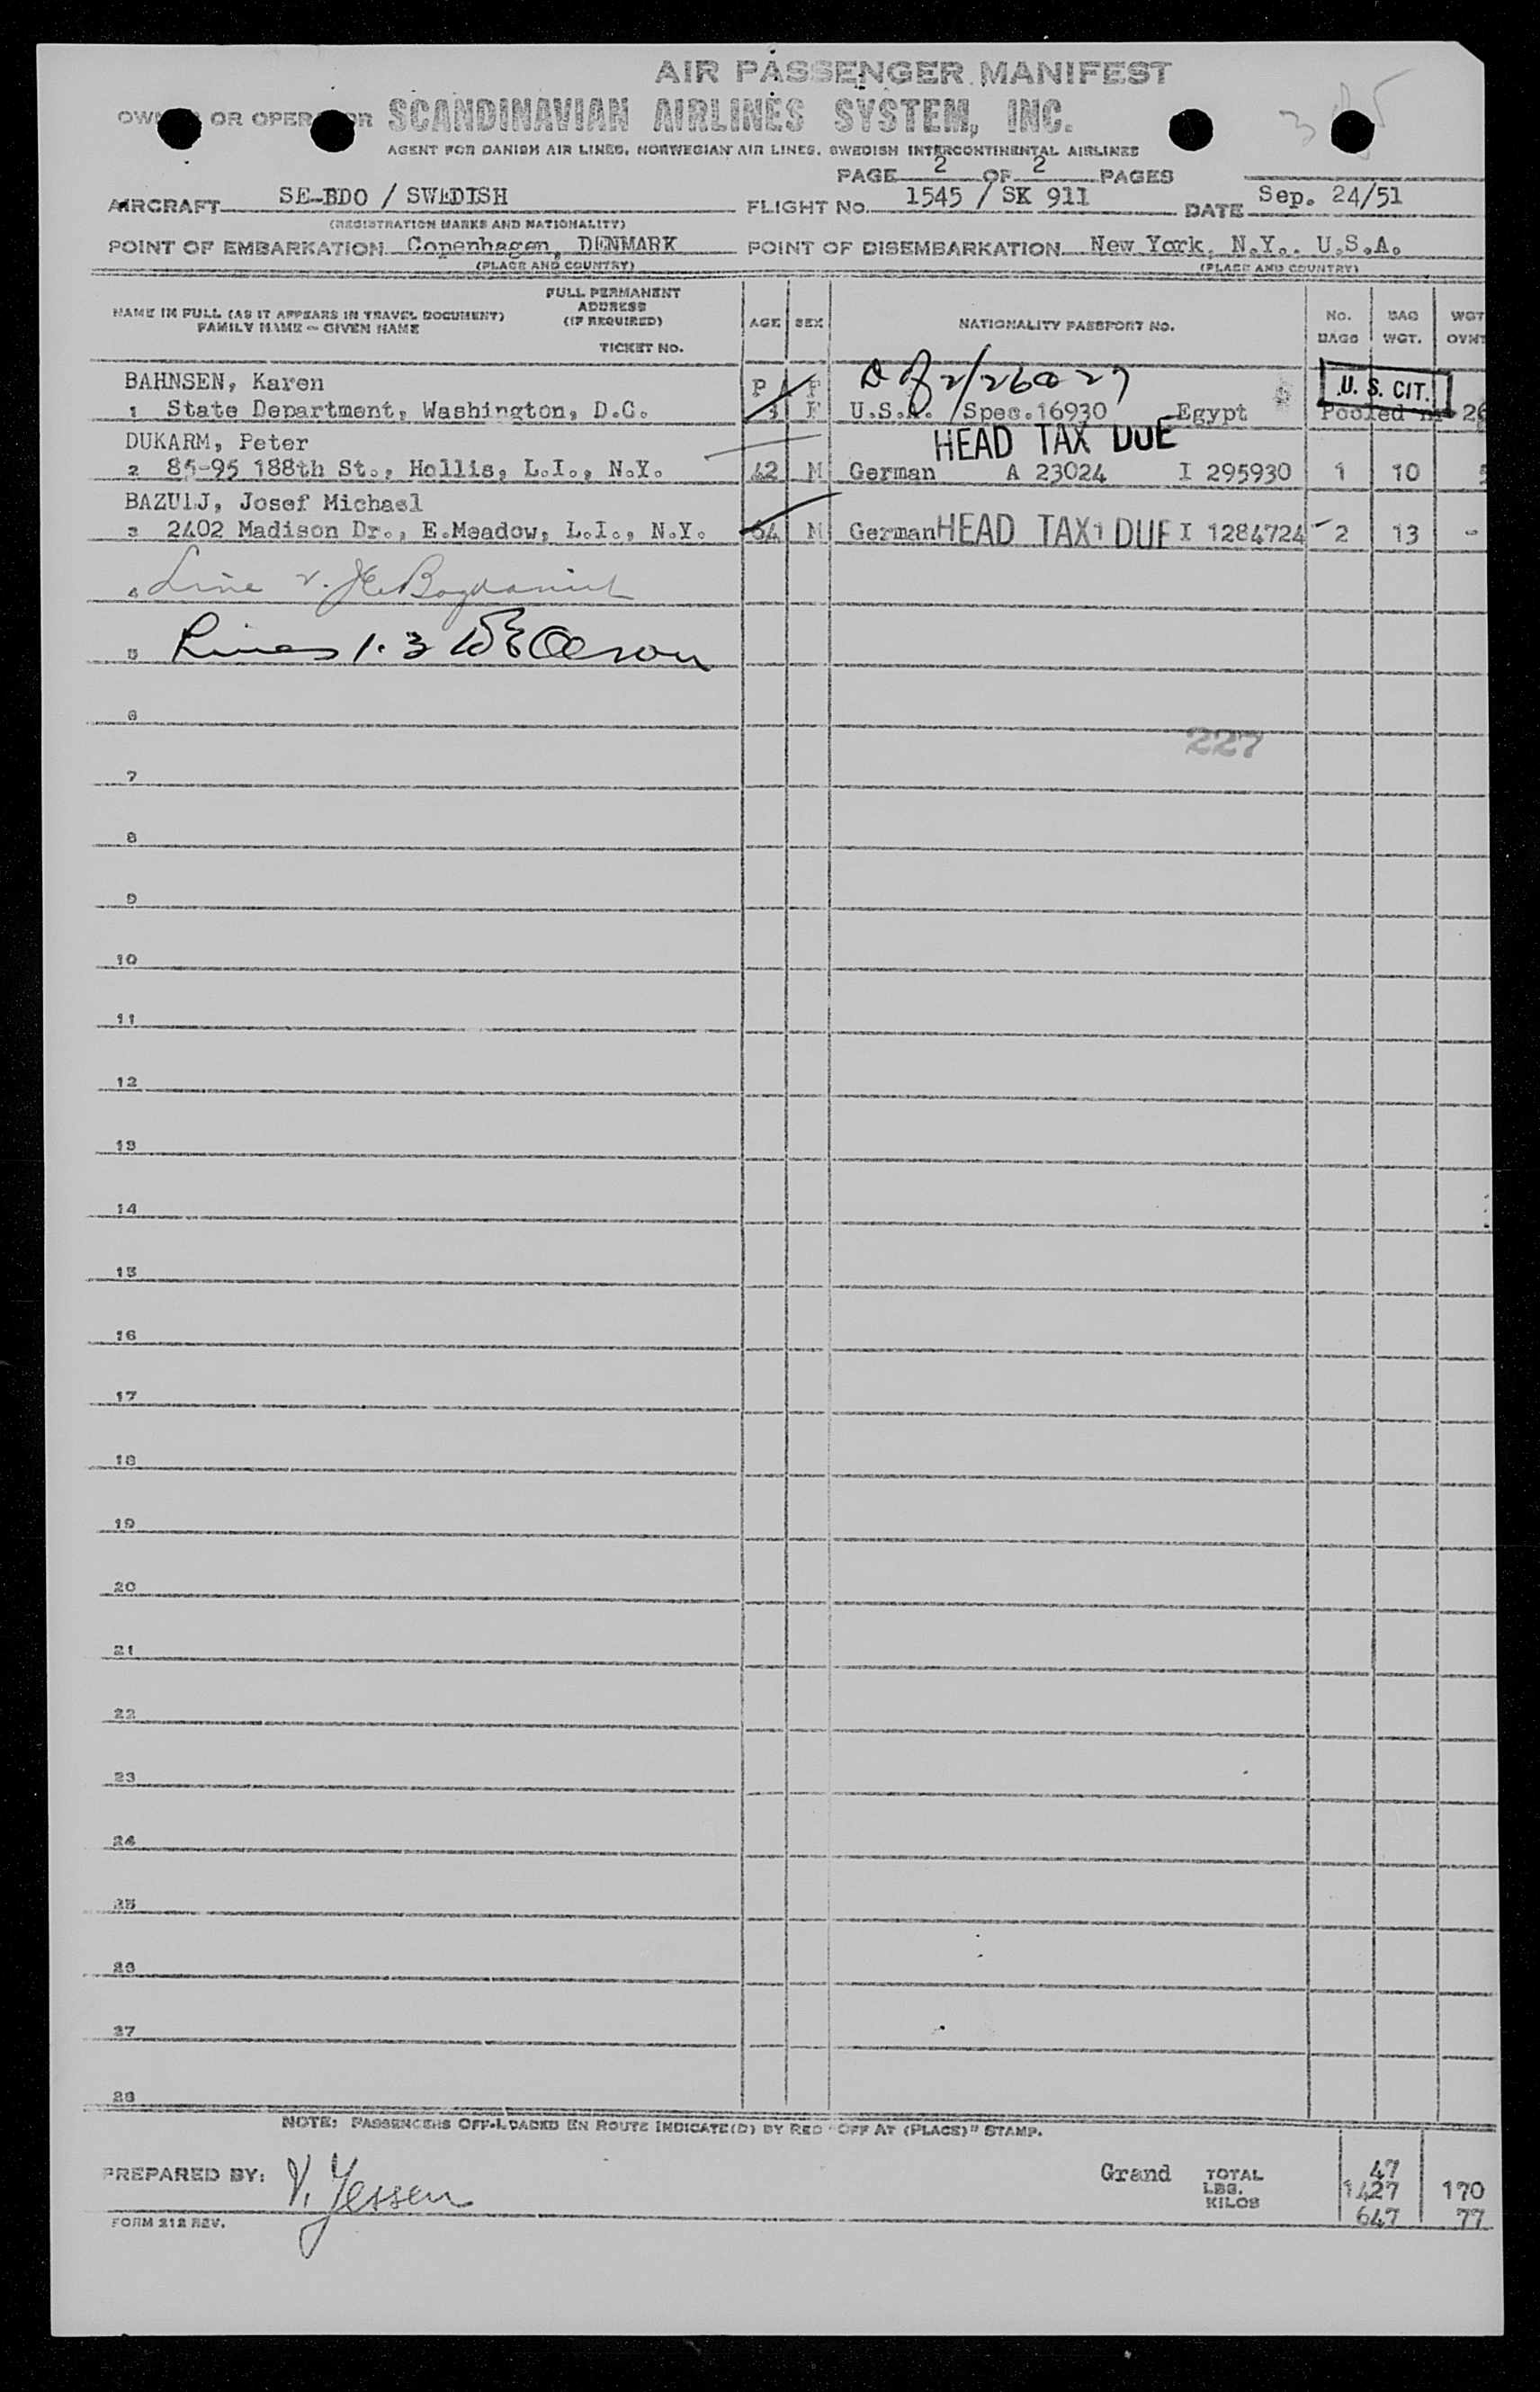 AIR PASSENGER MANIFEST
OR SCANDINAVIAN AIRLINES SYSTEM, INC.
AGENT FOR DANISH AIR LINES, NORWEGIAN AIR LINES, SWEDISH INTERCONTINENTAL AIRLINES
PAGE 2 OF 2 PAGES
AIRCRAFT SE-BDO / SWEDISH FLIGHT No. 1545 / SK 911 DATE Sep. 24/51
(REGISTRATION MARKS AND NATIONALITY)
POINT OF EMBARKATION Copenhagen, DENMARK POINT OF DISEMBARKATION New York, N.Y., U.S.A.
(PLACE AND COUNTRY) (PLACE AND COUNTRY)
NAME IN FULL (AS IT APPEARS IN TRAVEL DOCUMENT) FAMILY NAME - GIVEN NAME
FULL PERMANENT ADDRESS (IF REQUIRED)
TICKET NO.
AGE SEX NATIONALITY PASSPORT NO. No. BAGS BAG WGT. WGT
BAHNSEN, Karen
U. S. CIT.
1 State Department, Washington, D.C. 3 F U.S.A. Spec. 16930 Egypt Pooled
DUKARM, Peter
HEAD TAX DUE
2 85-95 188th St., Hollis, L.I., N.Y. 42 M German A 23024 I 295930 1 10
BAZULJ, Josef Michael
3 2402 Madison Dr., E.Meadow, L.I., N.Y. 54 M German HEAD TAX DUE I 1284724 2 13 -
4 Line
5 Lines 1. 3
6
227
7
8
9
10
11
12
13
14
15
16
17
18
19
20
21
22
23
24
25
26
27
28
NOTE: PASSENGERS OFF-LOADED EN ROUTE INDICATE(D) BY RED "OFF AT (PLACE)" STAMP.
PREPARED BY: V. Jessen
Grand TOTAL 47
LBS. 1427 170
KILOS 647 77
FORM 212 REV.